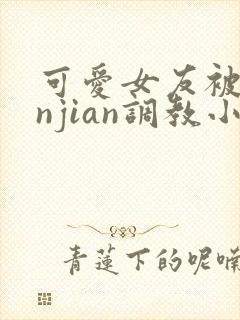 可愛女友被
njian調教小
青蓮下的呢喃